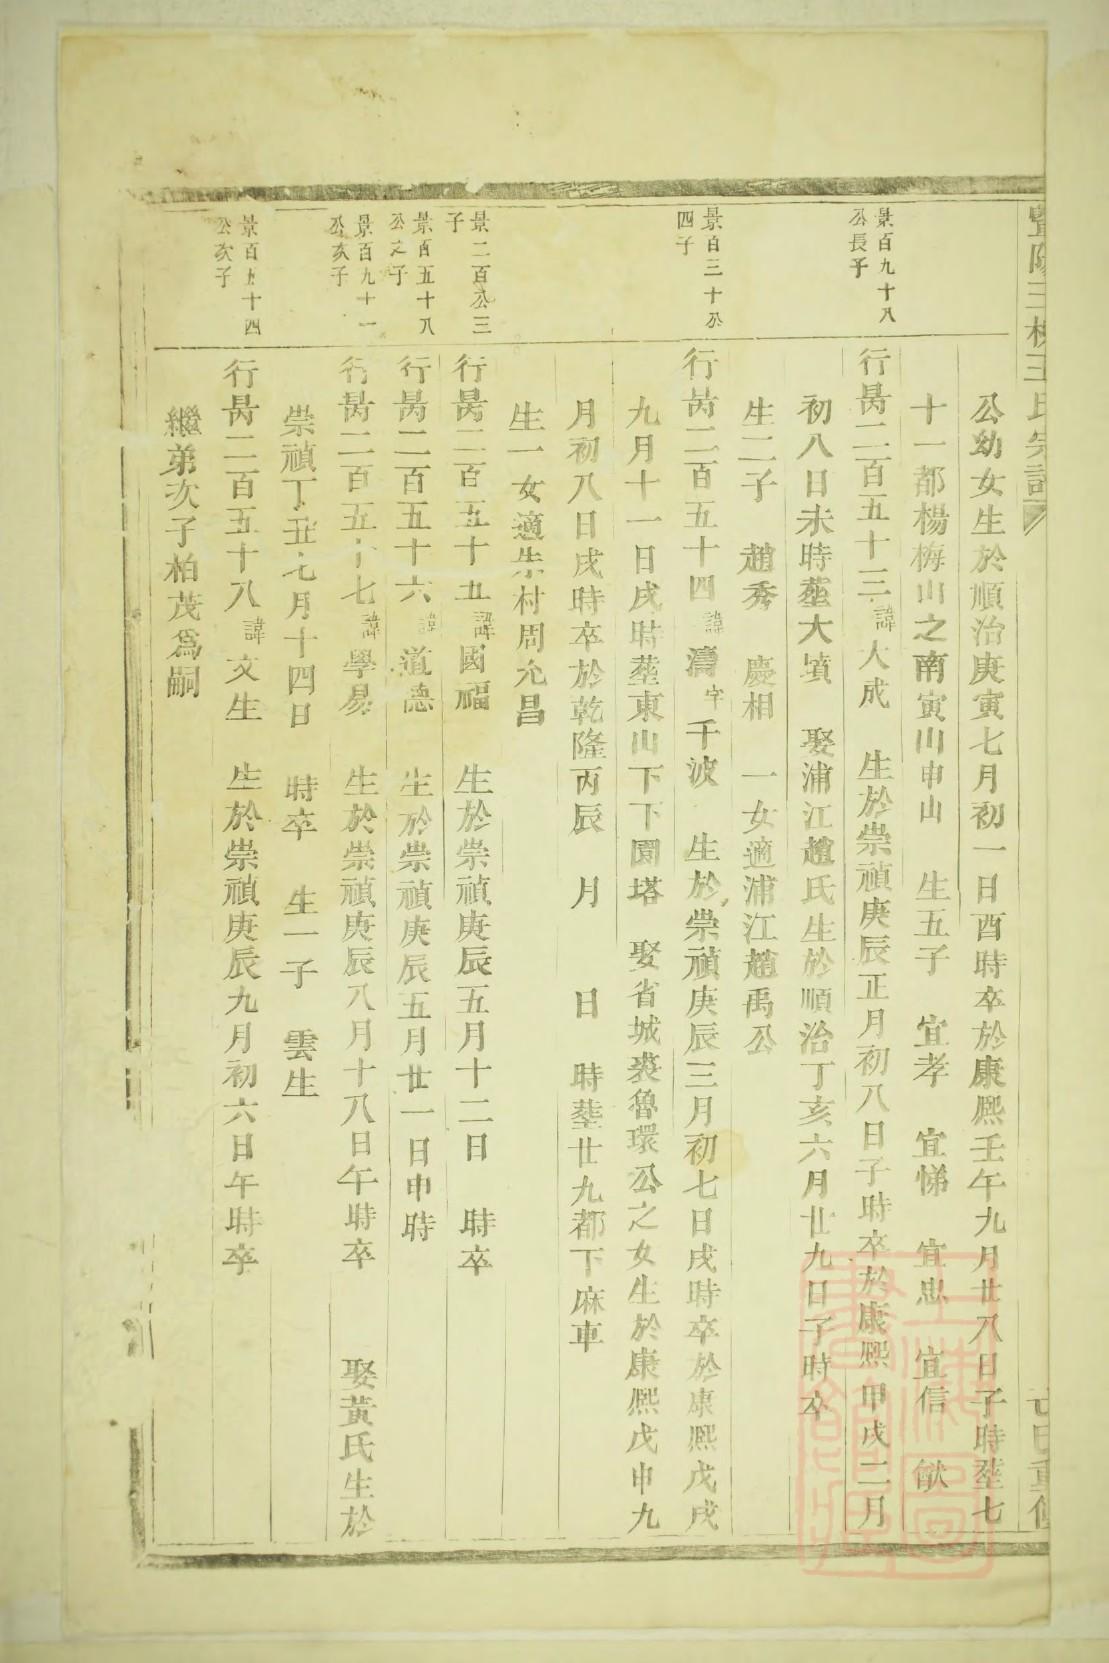 公幼女生於順治庚寅七月初一日酉時卒於康熙壬午九月廿八日子時塟七
十一都楊梅山之南寅山申山　生五子　宜孝　宜悌　宜忠　宜信　猷
景百九十八公長子
行昺二百五十三諱大成　生於崇禎庚辰正月初八日子時卒於康熙甲戌二月
初八日未時塟大墳　娶浦江趙氏生於順治丁亥六月廿九日子時卒
生二子　趙秀　慶相　一女適浦江趙禹公
景百三十公四子
行昺二百五十四諱濤字千波　生於崇禎庚辰三月初七日戌時卒於康熙戊戌
九月十一日戌時塟東山下下園塔　娶省城裘魯環公之女生於康熙戊申九
月初八日戌時卒於乾隆丙辰　月　日　時塟廿九都下麻車
生一女適朱村周允昌
景二百公三子
行昺二百五十五諱國福　生於崇禎庚辰五月十二日　時卒
景百五十八公之子
行昺二百五十六諱道德　生於崇禎庚辰五月廿一日申時
景百九十一公次子
行昺二百五十七諱學易　生於崇禎庚辰八月十八日午時卒　娶黃氏生於
崇禎丁丑七月十四日　時卒　生一子　雲生
景百五十四公次子
行昺二百五十八諱文生　生於崇禎庚辰九月初六日午時卒
繼弟次子柏茂爲嗣
上海圖書館藏